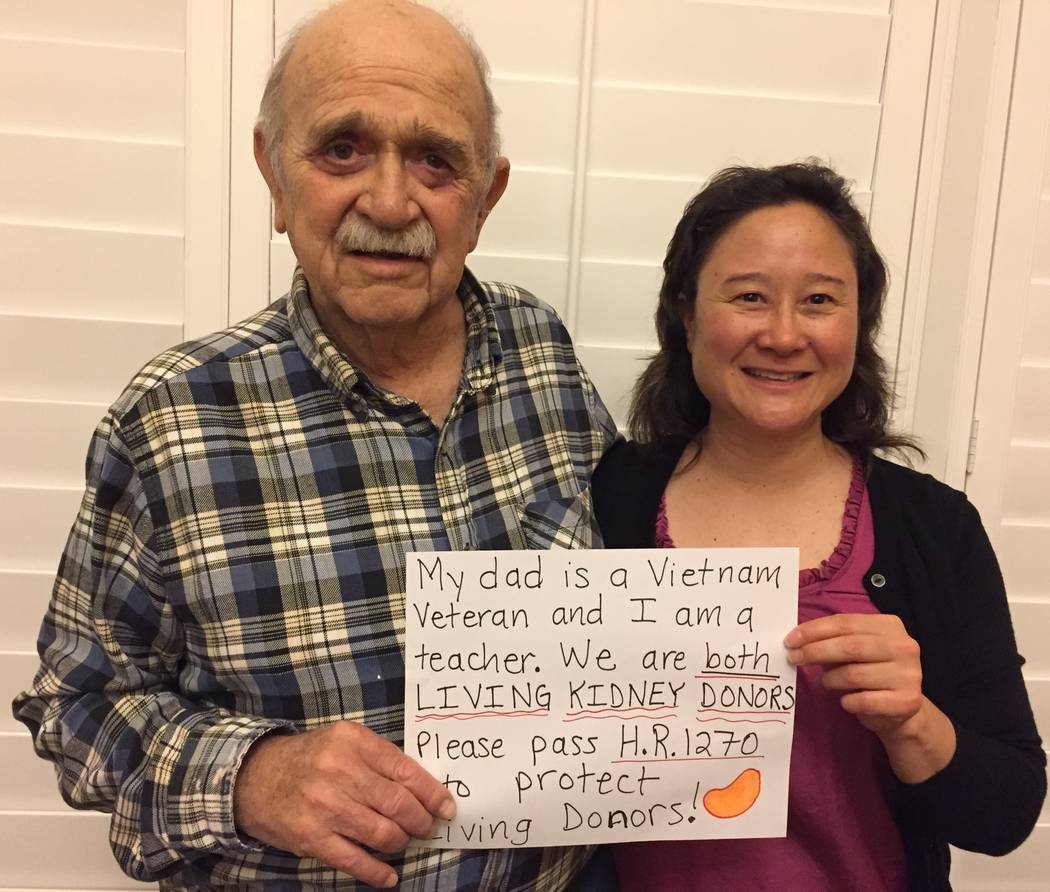 My dad is a Vietnam
Veteran and I am a
teacher. We are both
LIVING KIDNEY DONORS
Please pass H.R.1270
to protect
Living Donors!